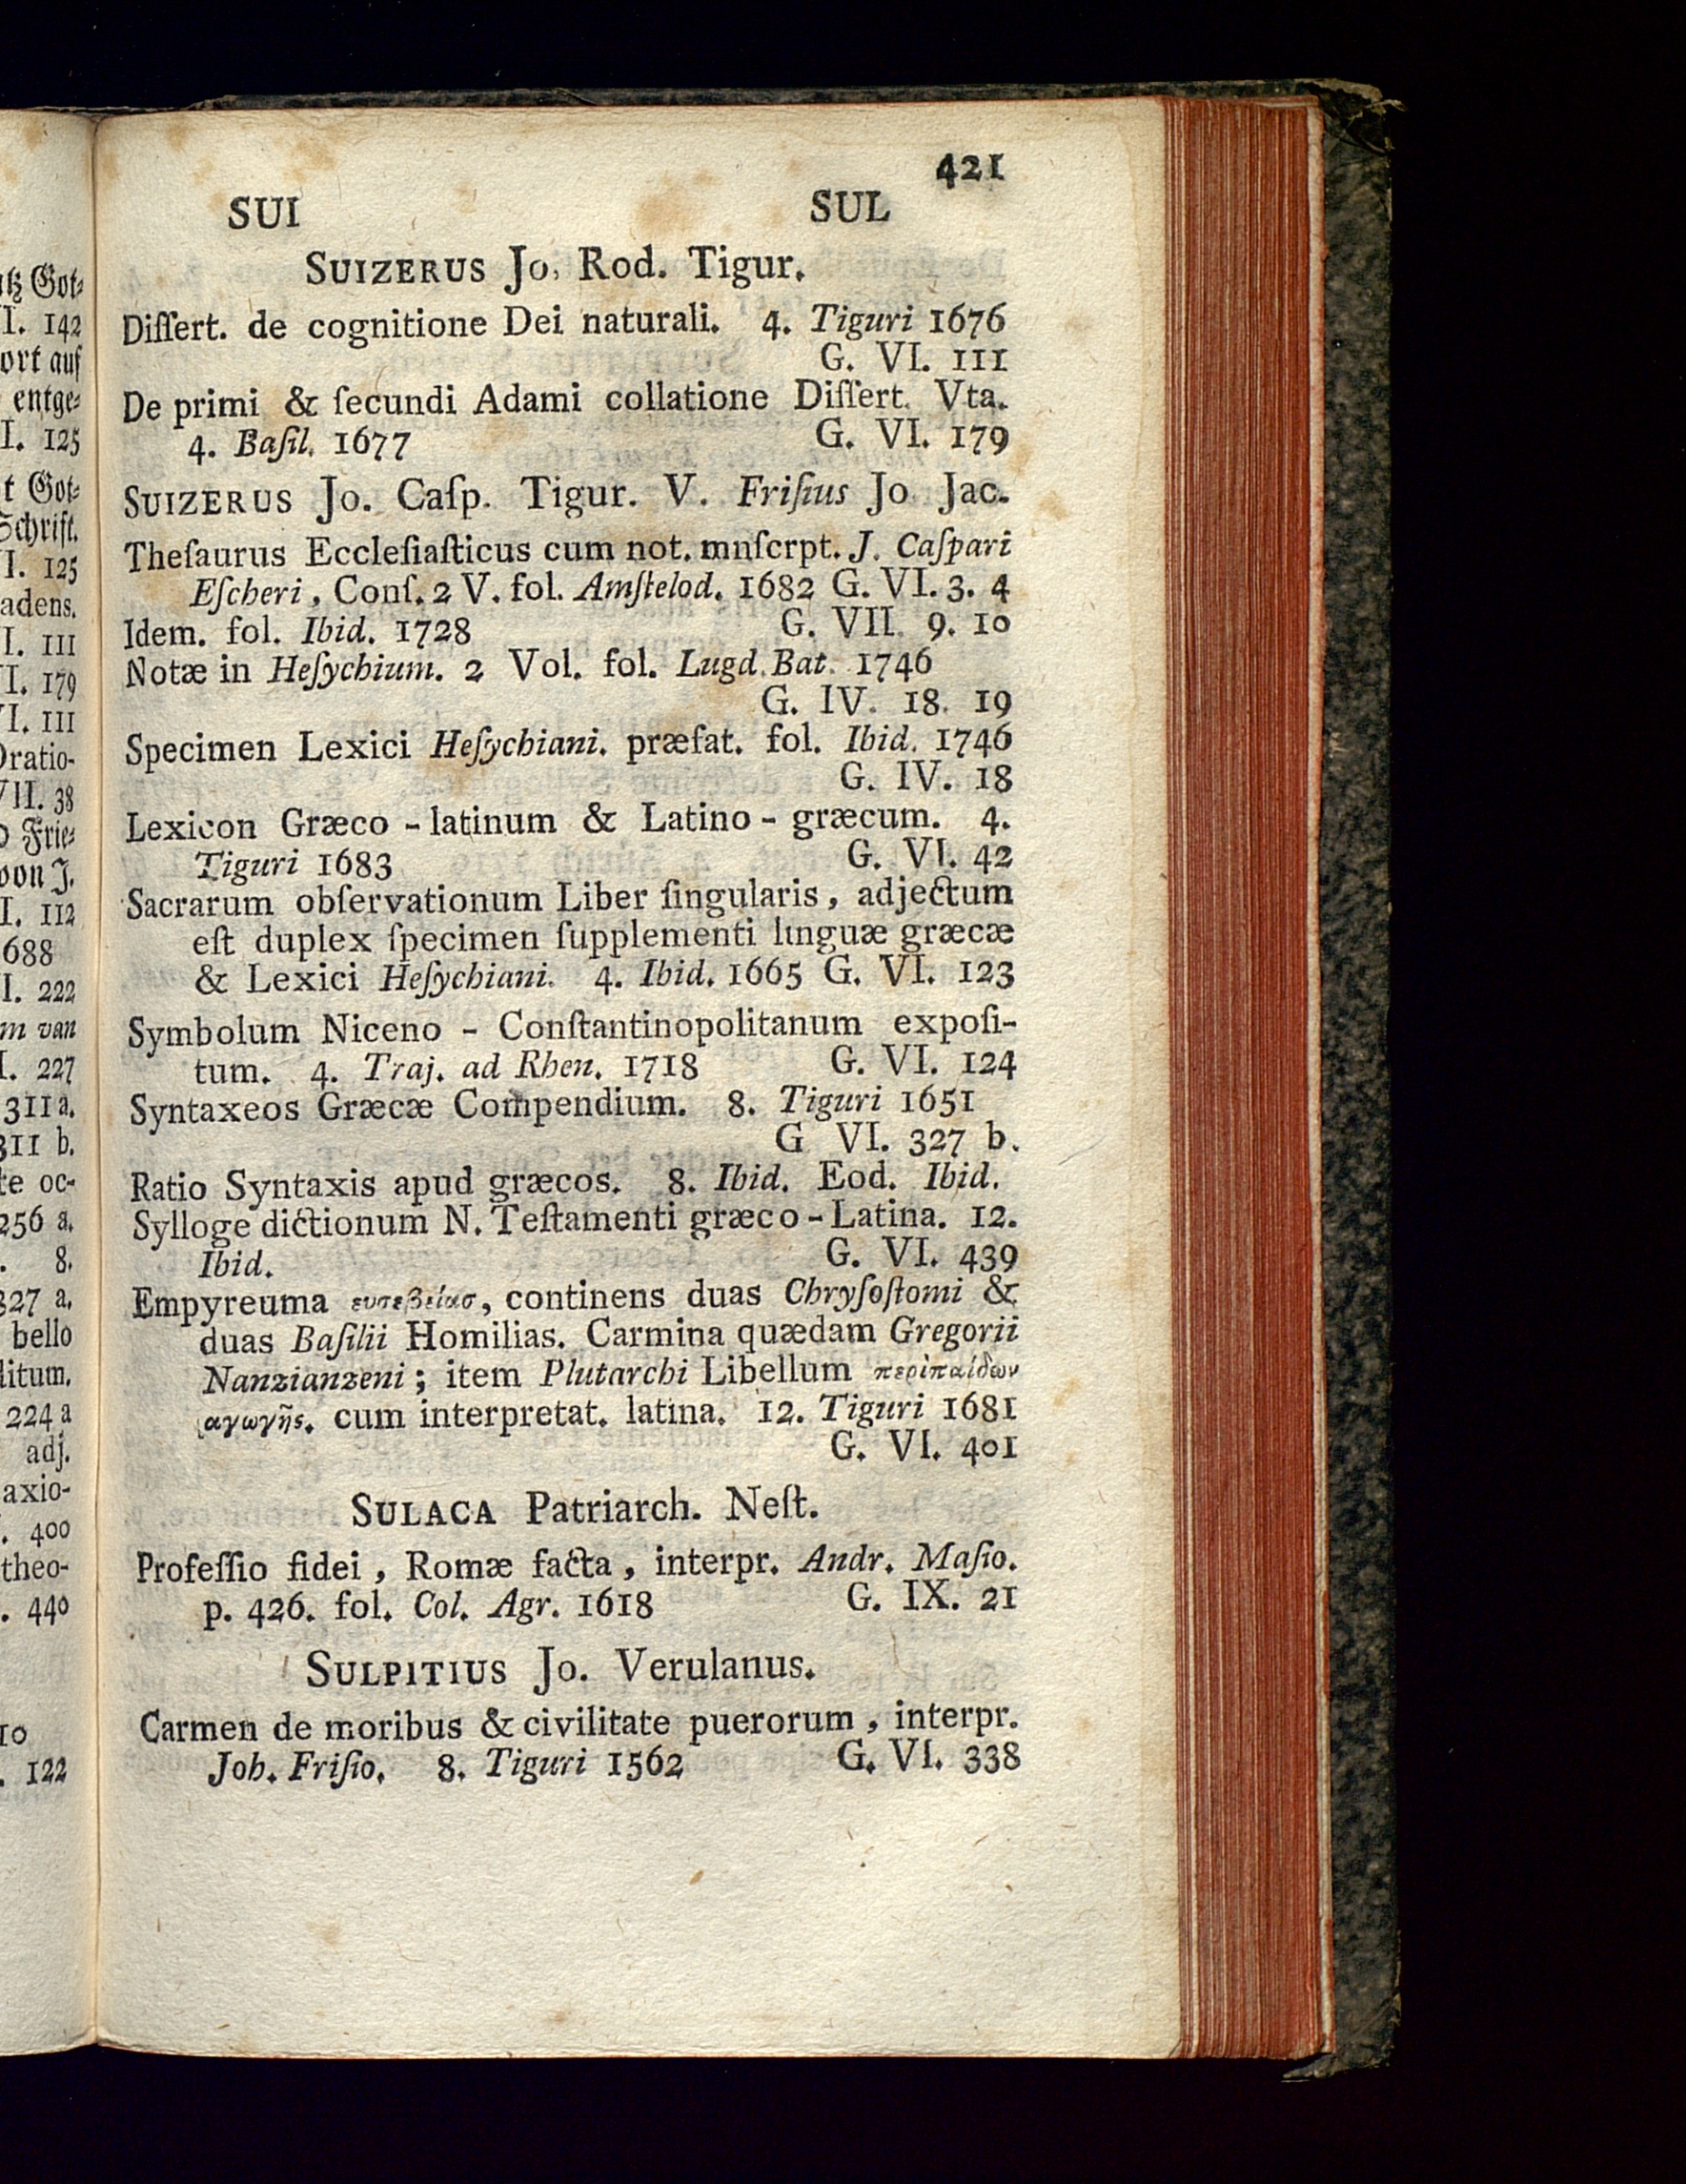 421
SUI SUL
SUIZERUS Jo. Rod. Tigur.
Diſſert. de cognitione Dei naturali. 4. Tiguri 1676
G. VI. 111
De primi & ſecundi Adami collatione Diſſert. Vta.
4. Baſil. 1677 G. VI. 179
SUIZERUS Jo. Caſp. Tigur. V. Friſius Jo Jac.
Theſaurus Eccleſiaſticus cum not. mnſcrpt. J. Caſpari
Eſcheri, Conſ. 2 V. fol. Amſtelod. 1682 G. VI. 3. 4
Idem. fol. Ibid. 1728 G. VII. 9. 10
Notæ in Heſychium. 2 Vol. fol. Lugd. Bat. 1746
G. IV. 18. 19
Specimen Lexici Heſychiani. præfat. fol. Ibid. 1746
G. IV. 18
Lexicon Græco - latinum & Latino - græcum. 4.
Tiguri 1683 G. VI. 42
Sacrarum obſervationum Liber ſingularis, adjectum
eſt duplex ſpecimen ſupplementi linguæ græcæ
& Lexici Heſychiani. 4. Ibid. 1665 G. VI. 123
Symbolum Niceno - Conſtantinopolitanum expoſi-
tum. 4. Traj. ad Rhen. 1718 G. VI. 124
Syntaxeos Græcæ Compendium. 8. Tiguri 1651
G VI. 327 b.
Ratio Syntaxis apud græcos. 8. Ibid. Eod. Ibid.
Sylloge dictionum N. Teſtamenti græco - Latina. 12.
Ibid. G. VI. 439
Empyreuma ευσεβείασ, continens duas Chryſoſtomi &
duas Baſilii Homilias. Carmina quædam Gregorii
Nanzianzeni; item Plutarchi Libellum περὶπαίδων
αγωγῆς. cum interpretat. latina. 12. Tiguri 1681
G. VI. 401
SULACA Patriarch. Neſt.
Profeſſio fidei, Romæ facta, interpr. Andr. Maſio.
p. 426. fol. Col. Agr. 1618 G. IX. 21
SULPITIUS Jo. Verulanus.
Carmen de moribus & civilitate puerorum, interpr.
Joh. Friſio. 8. Tiguri 1562 G. VI. 338